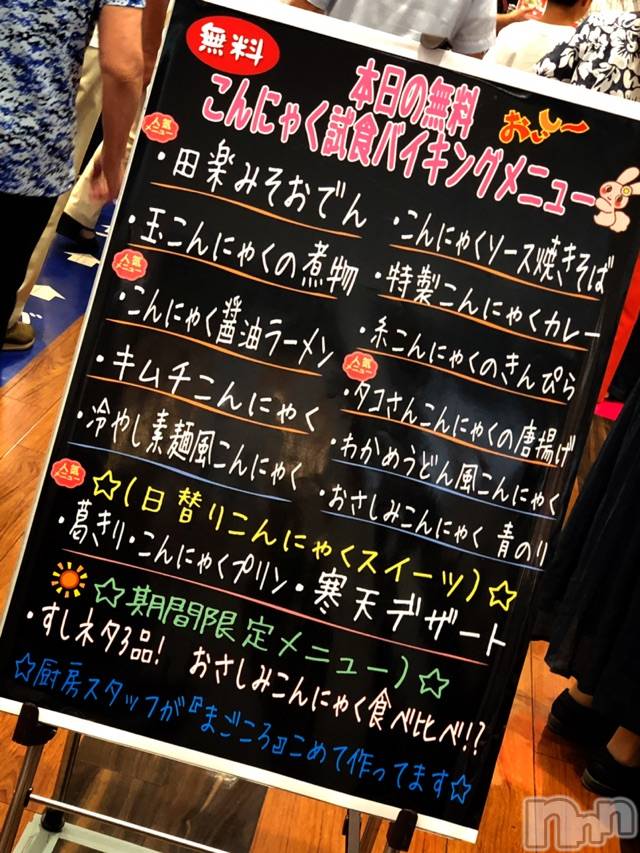 無料
本日の無料
おぃしー
こんにゃく試食バイキングメニュー
人気メニュー
・田楽みそおでん
・玉こんにゃくの煮物
人気メニュー
・こんにゃく醤油ラーメン
・キムチこんにゃく
・冷やし素麺風こんにゃく
・こんにゃくソース焼きそば
・特製こんにゃくカレー
・糸こんにゃくのきんぴら
人気メニュー
・タコさんこんにゃくの唐揚げ
・わかめうどん風こんにゃく
・おさしみこんにゃく 青のり
人気メニュー
☆(日替りこんにゃくスイーツ)☆
・葛きり・こんにゃくプリン・寒天デザート
☆期間限定メニュー)☆
・すしネタ3品! おさしみこんにゃく食べ比べ!?
☆厨房スタッフが『まごころ』こめて作ってます☆
nnn